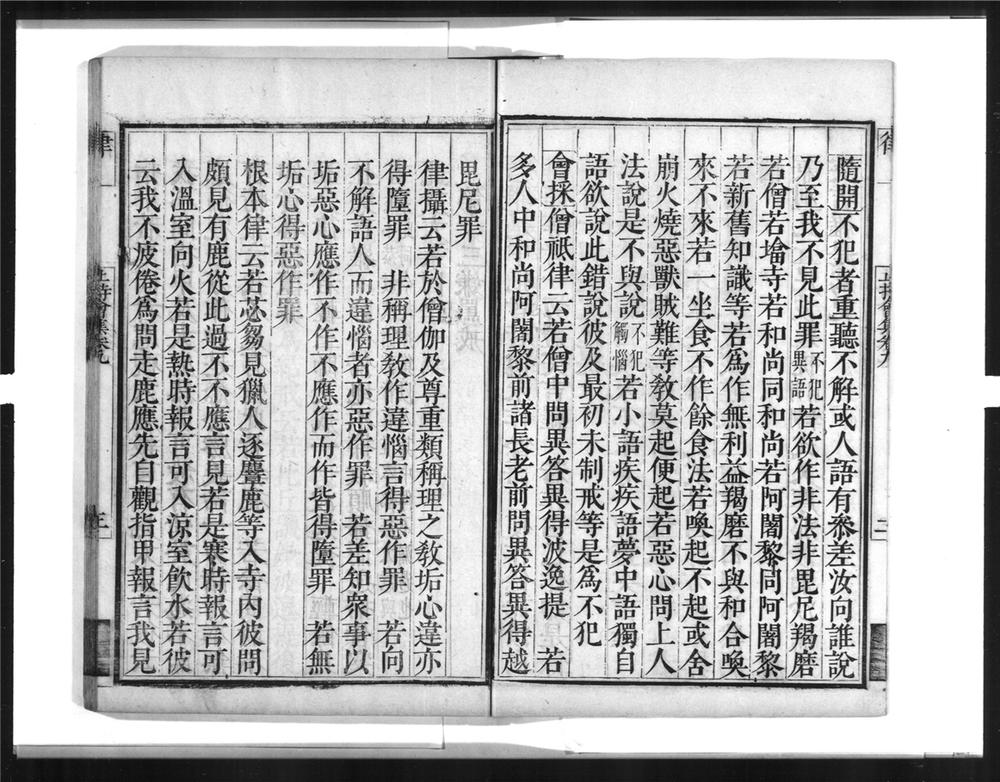 隨開不犯者重聽不解或人語有叅差汝向誰說
乃至我不見此罪不犯異語若欲作非法非毘尼羯磨
若僧若塔寺若和尚同和尚若阿闍黎同阿闍黎
若新舊知識等若爲作無利益羯磨不與和合喚
來不來若一坐食不作餘食法若喚起不起或舍
崩火燒惡獸賊難等教莫起便起若惡心問上人
法說是不與說不犯觸惱若小語疾疾語夢中語獨自
語欲說此錯說彼及最初未制戒等是爲不犯
會採僧祇律云若僧中問異答異得波逸提　若
多人中和尚阿闍黎前諸長老前問異答異得越
毘尼罪
律攝云若於僧伽及尊重類稱理之教垢心違亦
得墮罪　非稱理教作違惱言得惡作罪　若向
不解語人而違惱者亦惡作罪　若差知衆事以
垢惡心應作不作不應作而作皆得墮罪　若無
垢心得惡作罪
根本律云若苾芻見獵人逐麞鹿等入寺內彼問
頗見有鹿從此過不不應言見若是寒時報言可
入溫室向火若是熱時報言可入涼室飮水若彼
云我不疲倦爲問走鹿應先自觀指甲報言我見
律
止持會集卷九
三